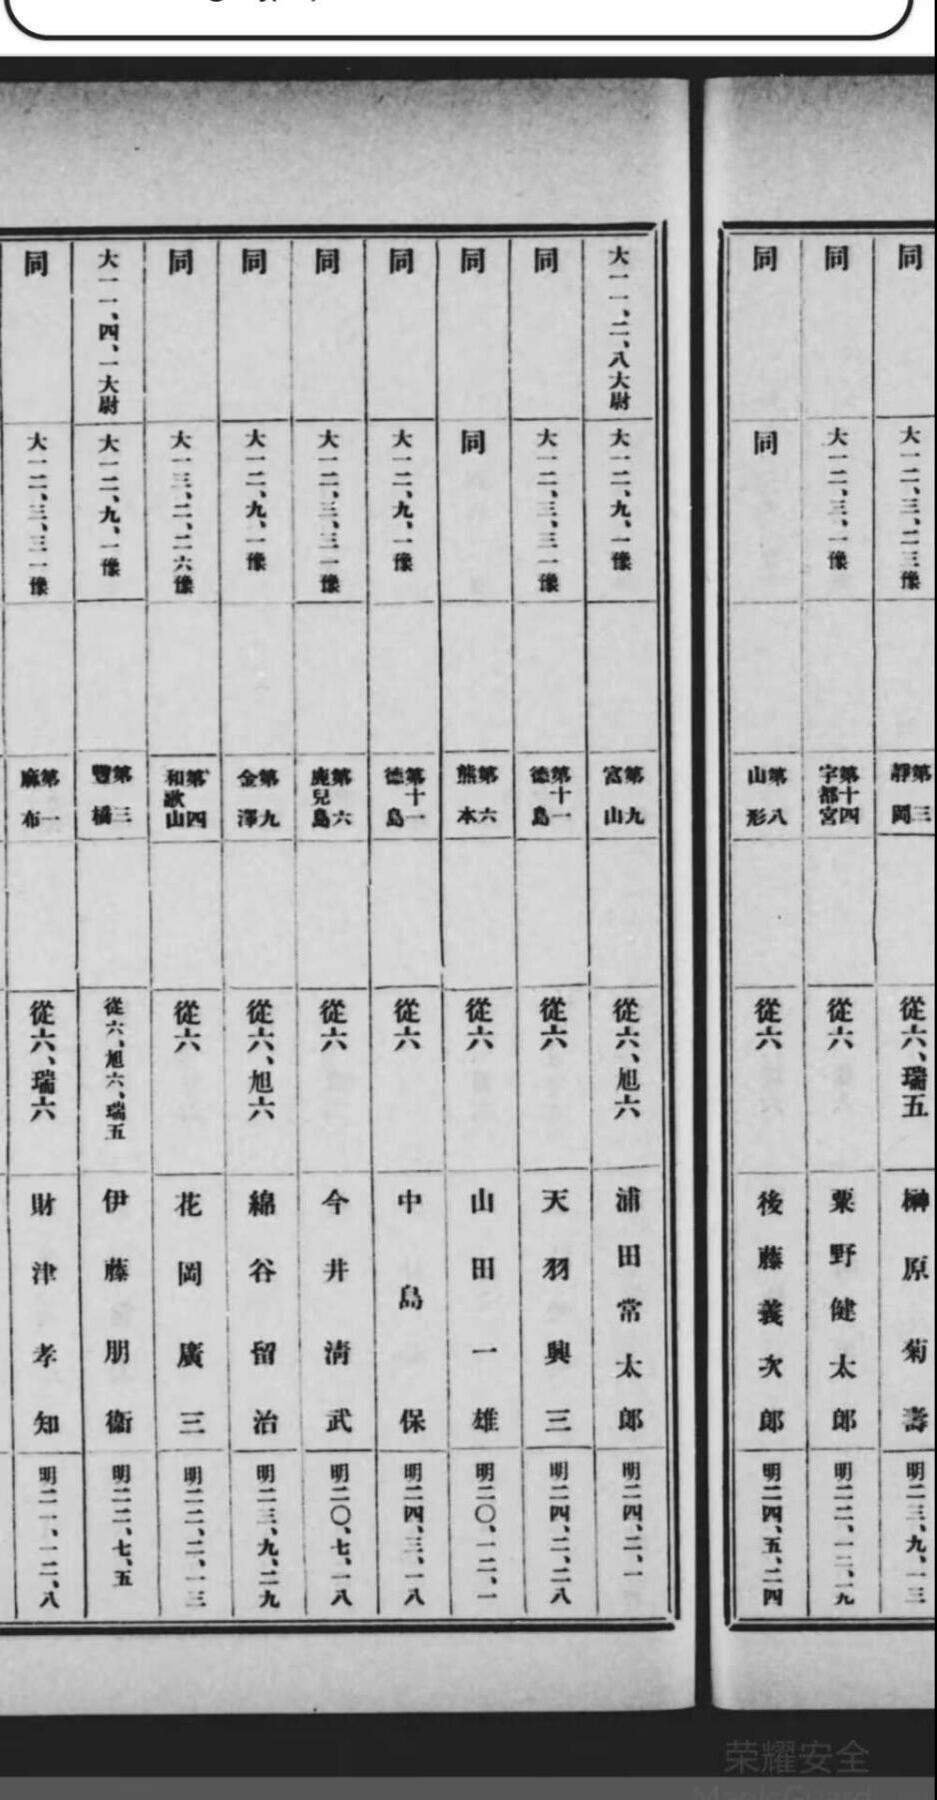 同 大一二、三、二三豫 第三靜岡 從六、瑞五 榊原菊壽 明二三、九、一三
同 大一二、三、一豫 第十四宇都宮 從六 粟野健太郎 明二二、一二、一九
同 同 第八山形 從六 後藤義次郎 明二四、五、二四
大一一、二、八大尉 大一二、九、一豫 第九富山 從六、旭六 浦田常太郎 明二四、二、一
同 大一二、三、三一豫 第十一德島 從六 天羽興三 明二四、二、二八
同 同 第六熊本 從六 山田一雄 明二〇、一二、一
同 大一二、九、一豫 第十一德島 從六 中島保 明二四、三、一八
同 大一二、三、三一豫 第六鹿兒島 從六 今井淸武 明二〇、七、一八
同 大一二、九、一豫 第九金澤 從六、旭六 綿谷留治 明二三、九、二九
同 大一三、二、二六豫 第四和歌山 從六 花岡廣三 明二二、二、一三
大一一、四、一大尉 大一二、九、一豫 第三豐橋 從六、旭六、瑞五 伊藤朋衞 明二二、七、五
同 大一二、三、三一豫 第一麻布 從六、瑞六 財津孝知 明二一、一二、八
荣耀安全